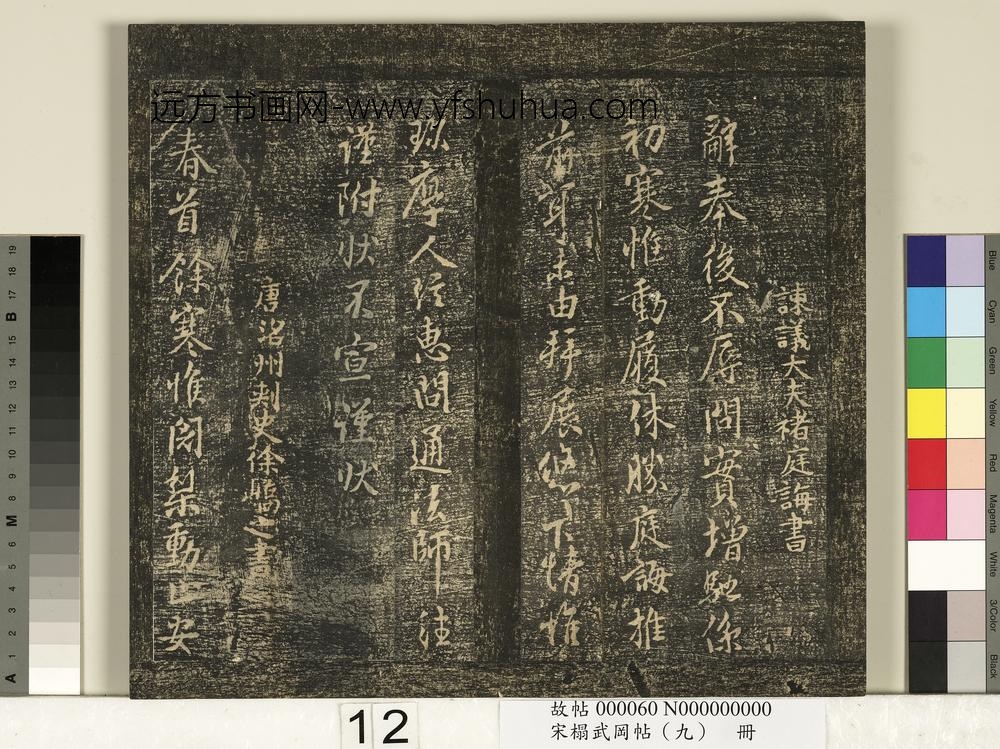 諫議大夫褚庭誨書
辭奉後不辱問實增馳係
初寒惟動履休勝庭誨推
前耳未由拜展悠下情惟
珎摩人至惠問通法師注
謹附狀不宣謹狀
唐洺州刺史徐嶠之書
春首餘寒惟闍棃動止安
远方书画网-www.yfshuhua.com
故帖 000060 N000000000
宋榻武岡帖（九） 冊
12
Blue
Cyan
Green
Yellow
Red
Magenta
White
3/Color
Black
A 1 2 3 4 5 6 M 8 9 10 11 12 13 14 15 B 17 18 19